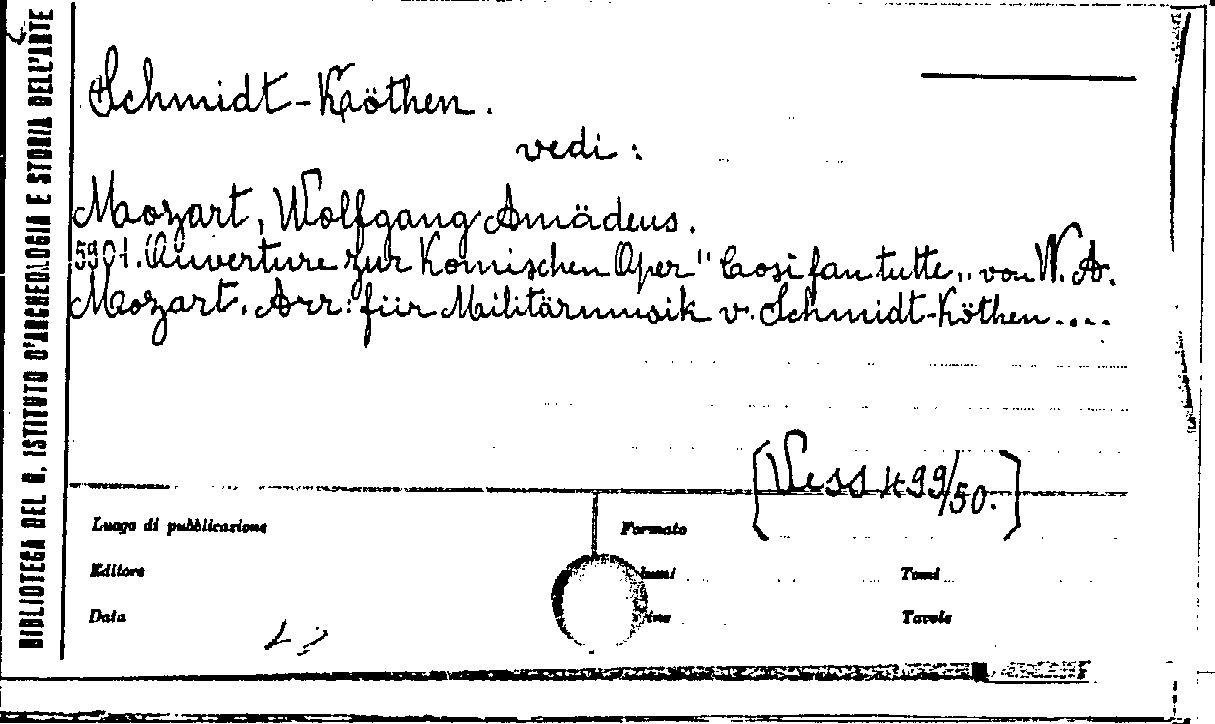 BIBLIOTECA DEL R. ISTITUTO D'ARCHEOLOGIA E STORIA DELL'ARTE
Schmidt-Köthen.
vedi:
Mozart, Wolfgang Amädeus.
5901. Ouverture zur Komischen Oper "Cosi fan tutte„ von W. A.
Mozart. Arr: für Militärmusik v. Schmidt-Köthen....
[Vess 499/50.]
Luogo di pubblicazione
Formato
Editore
Tomi
Data
Tavole